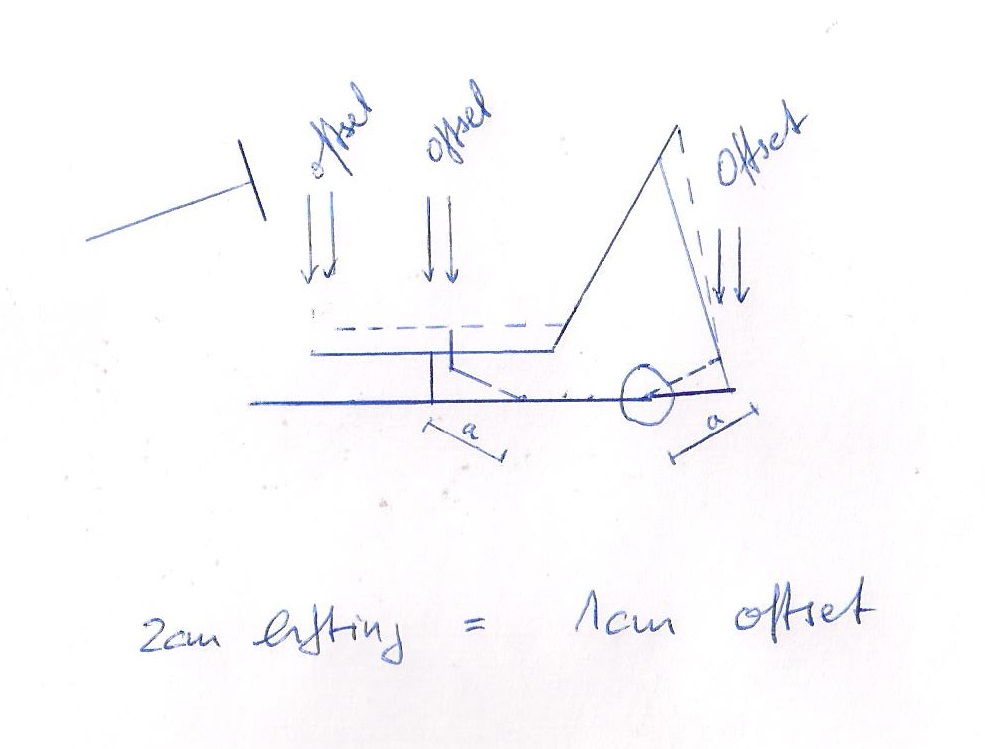 offset
offset
Offset
a
a
2cm lifting = 1cm offset